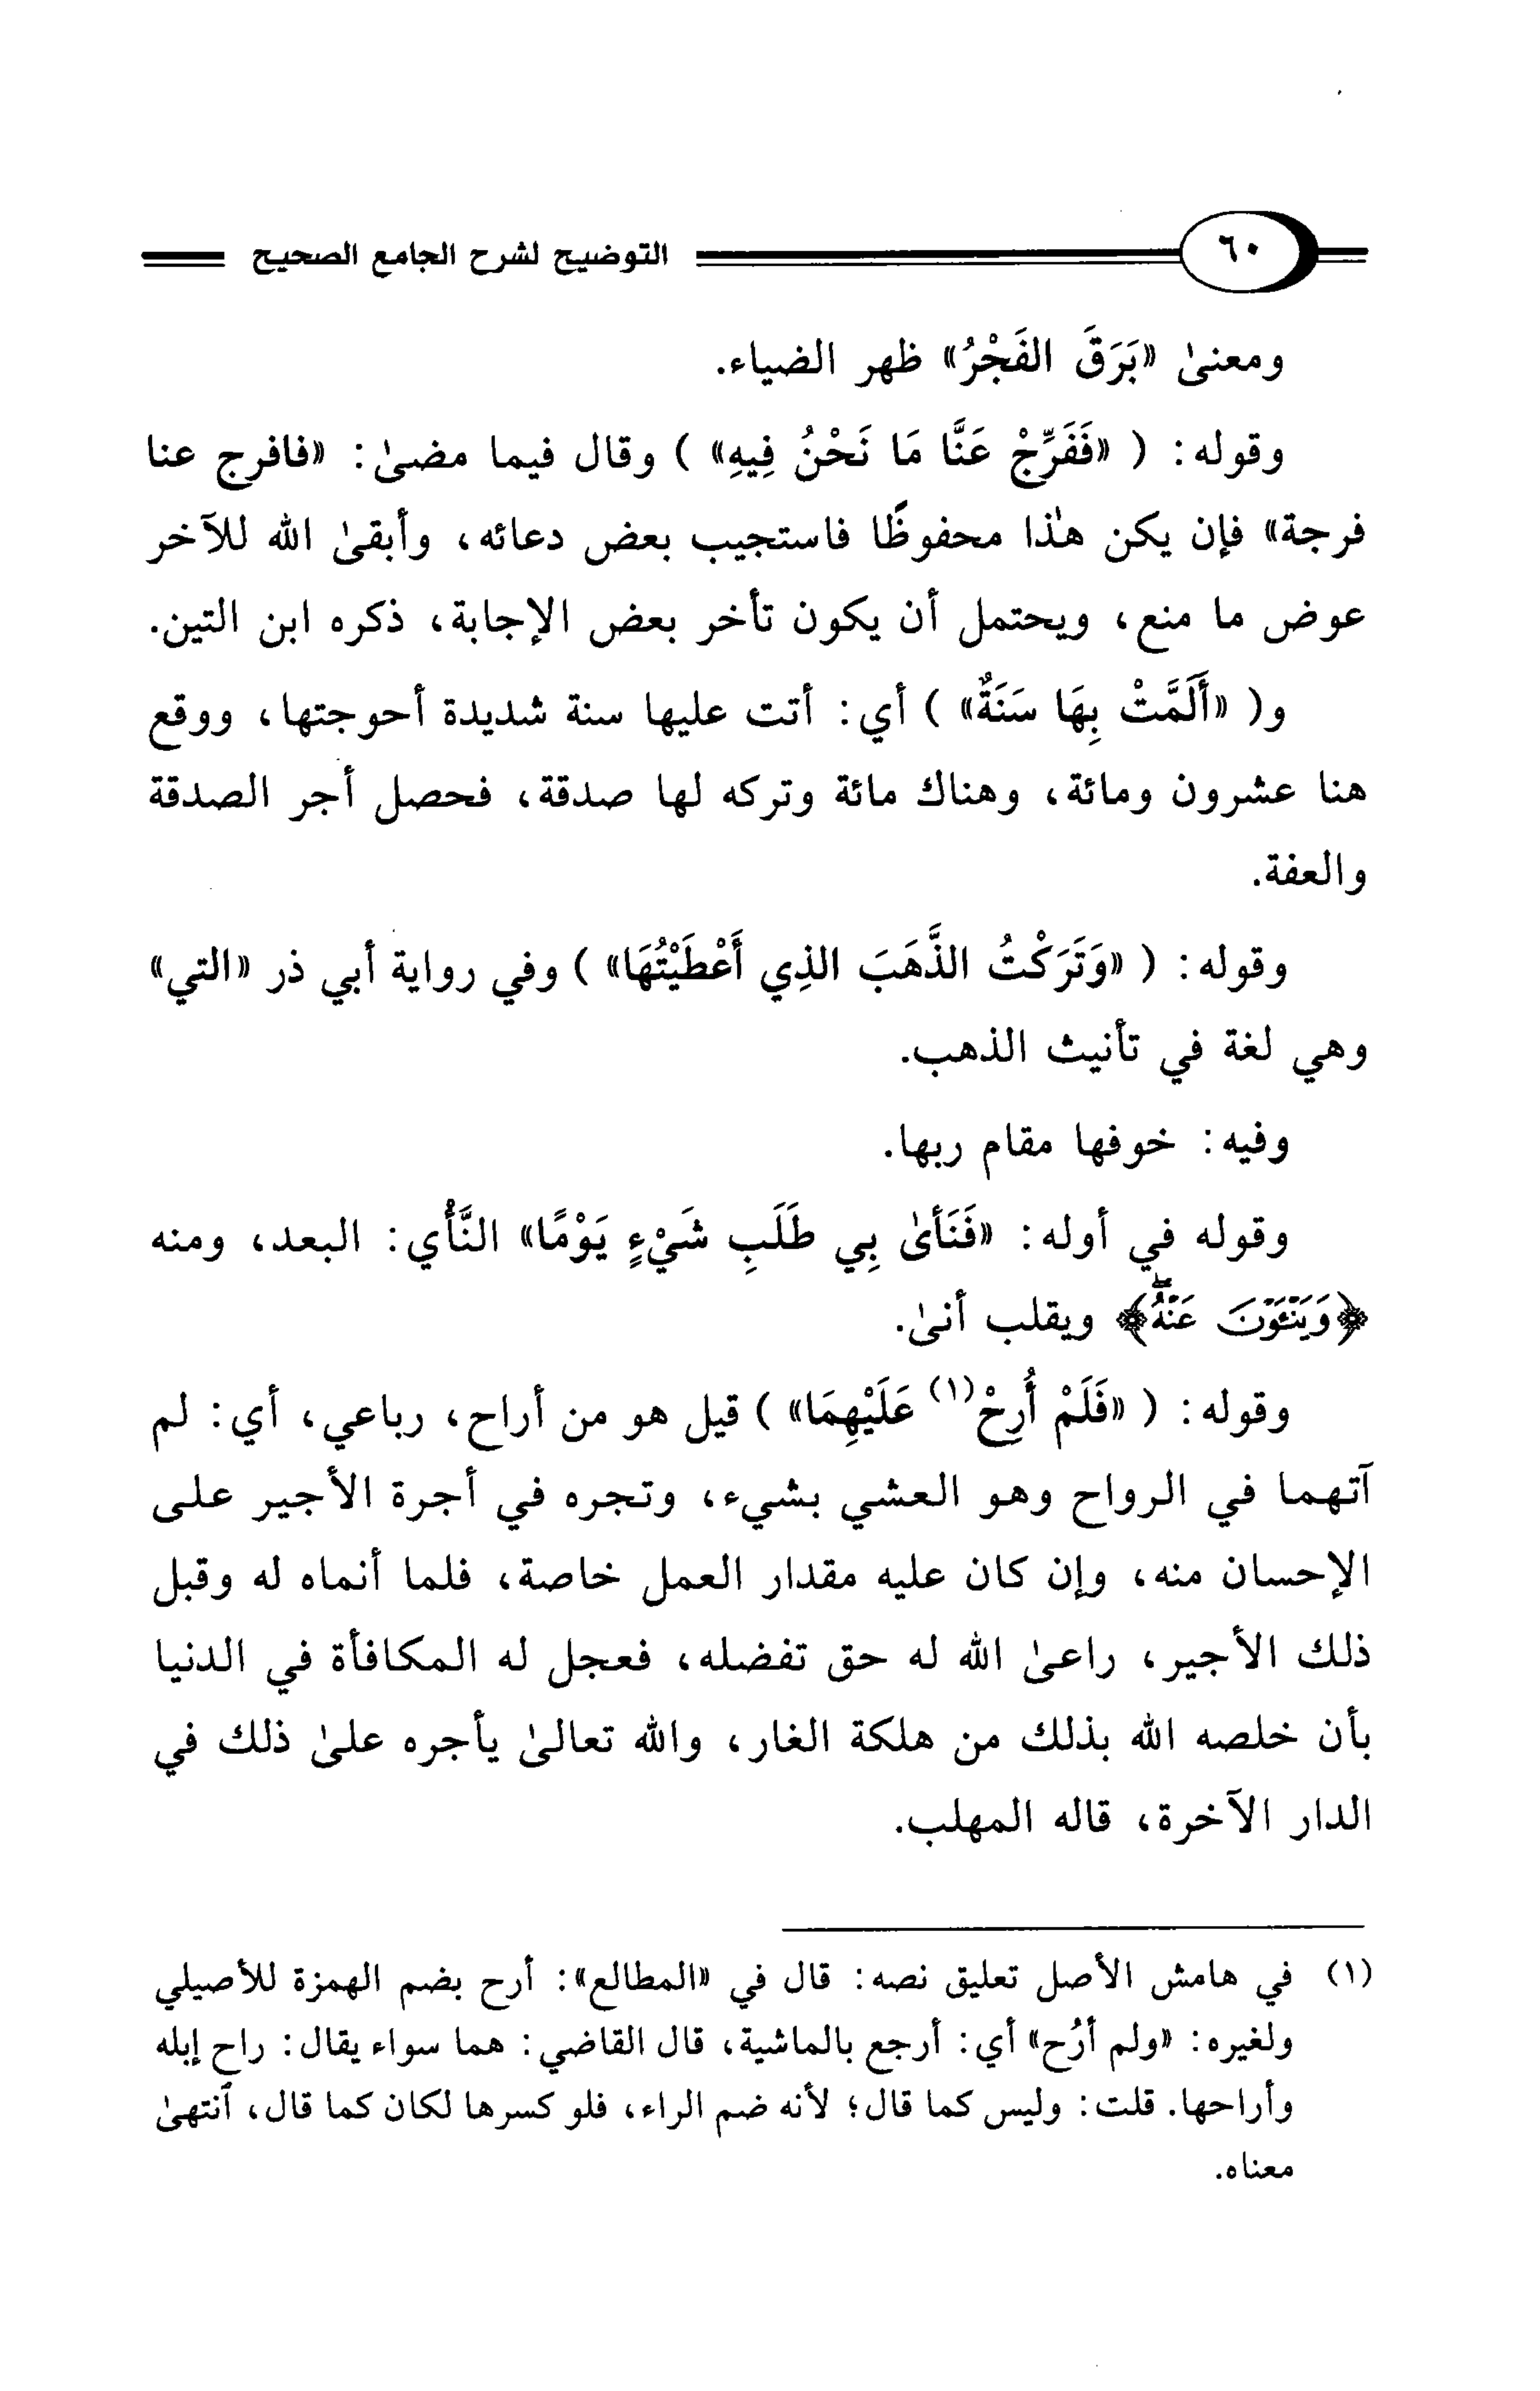 ٦٠ التوضيح لشرح الجامع الصحيح
ومعنىٰ «بَرَقَ الفَجْرُ» ظهر الضياء.
وقوله: ( «فَفَرِّجْ عَنَّا مَا نَحْنُ فِيهِ» ) وقال فيما مضىٰ: «فافرج عنا
فرجة» فإن يكن هذا محفوظًا فاستجيب بعض دعائه، وأبقىٰ الله للآخر
عوض ما منع، ويحتمل أن يكون تأخر بعض الإجابة، ذكره ابن التين.
و( «أَلَمَّتْ بِهَا سَنَةٌ» ) أي: أتت عليها سنة شديدة أحوجتها، ووقع
هنا عشرون ومائة، وهناك مائة وتركه لها صدقة، فحصل أجر الصدقة
والعفة.
وقوله: ( «وَتَرَكْتُ الذَّهَبَ الذِي أَعْطَيْتُهَا» ) وفي رواية أبي ذر «التي»
وهي لغة في تأنيث الذهب.
وفيه: خوفها مقام ربها.
وقوله في أوله: «فَنَأىٰ بِي طَلَبِ شَيْءٍ يَوْمًا» النَّأْي: البعد، ومنه
﴿وَيَنْـَٔوْنَ عَنْهُۖ﴾ ويقلب أنىٰ.
وقوله: ( «فَلَمْ أُرِحْ(١) عَلَيْهِمَا» ) قيل هو من أراح، رباعي، أي: لم
آتهما في الرواح وهو العشي بشيء، وتجره في أجرة الأجير على
الإحسان منه، وإن كان عليه مقدار العمل خاصة، فلما أنماه له وقبل
ذلك الأجير، راعىٰ الله له حق تفضله، فعجل له المكافأة في الدنيا
بأن خلصه الله بذلك من هلكة الغار، والله تعالىٰ يأجره علىٰ ذلك في
الدار الآخرة، قاله المهلب.
(١) في هامش الأصل تعليق نصه: قال في «المطالع»: أرح بضم الهمزة للأصيلي
ولغيره: «ولم أرُح» أي: أرجع بالماشية، قال القاضي: هما سواء يقال: راح إبله
وأراحها. قلت: وليس كما قال؛ لأنه ضم الراء، فلو كسرها لكان كما قال، ٱنتهىٰ
معناه.